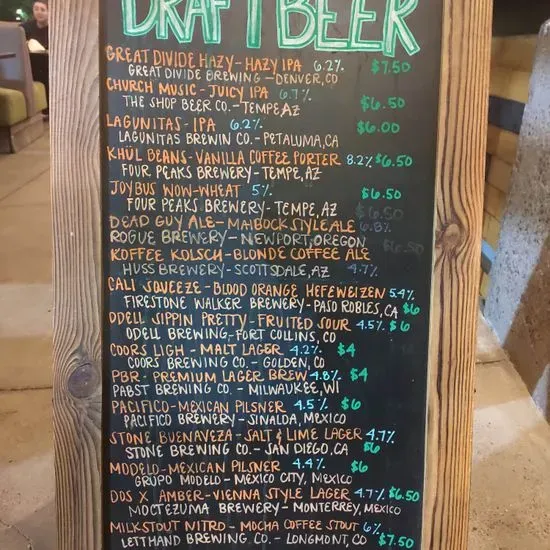 DRAFT BEER
GREAT DIVIDE HAZY - HAZY IPA 6.2% $7.50
GREAT DIVIDE BREWING - DENVER, CO
CHURCH MUSIC - JUICY IPA 6.7%
THE SHOP BEER CO. - TEMPE AZ $6.50
LAGUNITAS - IPA 6.2% $6.00
LAGUNITAS BREWIN CO. - PETALUMA, CA
KHÜL BEANS - VANILLA COFFEE PORTER 8.2% $6.50
FOUR PEAKS BREWERY - TEMPE, AZ
JOYBUS WOW - WHEAT 5% $6.50
FOUR PEAKS BREWERY - TEMPE, AZ $6.50
DEAD GUY ALE - MAIBOCK STYLE ALE 6.8%
ROGUE BREWERY - NEWPORT, OREGON $6.50
KOFFEE KOLSCH - BLONDE COFFEE ALE
HUSS BREWERY - SCOTTSDALE, AZ 4.7%
CALI SQUEEZE - BLOOD ORANGE HEFEWEIZEN 5.4%
FIRESTONE WALKER BREWERY - PASO ROBLES, CA $6
ODELL SIPPIN PRETTY - FRUITED SOUR 4.5% $6
ODELL BREWING - FORT COLLINS, CO
COORS LIGH - MALT LAGER 4.2% $4
COORS BREWING CO. - GOLDEN, CO
PBR - PREMIUM LAGER BREW 4.8% $4
PABST BREWING CO. - MILWAUKEE, WI
PACIFICO - MEXICAN PILSNER 4.5% $6
PACIFICO BREWERY - SINALOA, MEXICO
STONE BUENAVEZA - SALT & LIME LAGER 4.7%
STONE BREWING CO. - SAN DIEGO, CA $6
MODELO - MEXICAN PILSNER 4.4% $6
GRUPO MODELO - MEXICO CITY, MEXICO
DOS X AMBER - VIENNA STYLE LAGER 4.7% $6.50
MOCTEZUMA BREWERY - MONTERREY, MEXICO
MILK STOUT NITRO - MOCHA COFFEE STOUT 6%
LETTHAND BREWING CO. - LONGMONT, CO $7.50